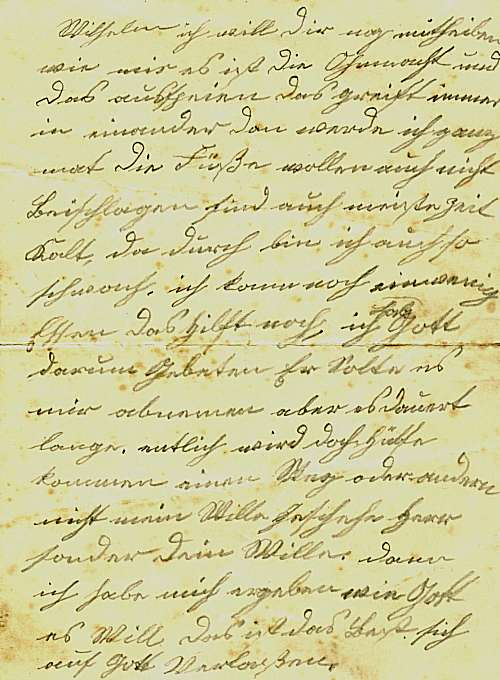 Wilhelm ich will dir nog mittheilen
wie mir es ist die Ohnmacht und
das ausspeien das greift immer
in einander dan werde ich ganz
mat die Füße wollen auch nicht
Beischlagen sind auch meiste Zeit
Kalt, da durch bin ich auch so
schwach, ich kann noch ein wenig
Essen das hilft noch, ich habe Gott
darum Gebeten Er Solte es
mir abnemen aber es dauert
lange. entlich wird doch Hülfe
kommen einen Weg oder andern
nicht mein Wille Geschehe Herr
sonder dein Wille. dann
ich habe mich ergeben wie Gott
es Will das ist das Best sich
auf Gott Verlaßen.